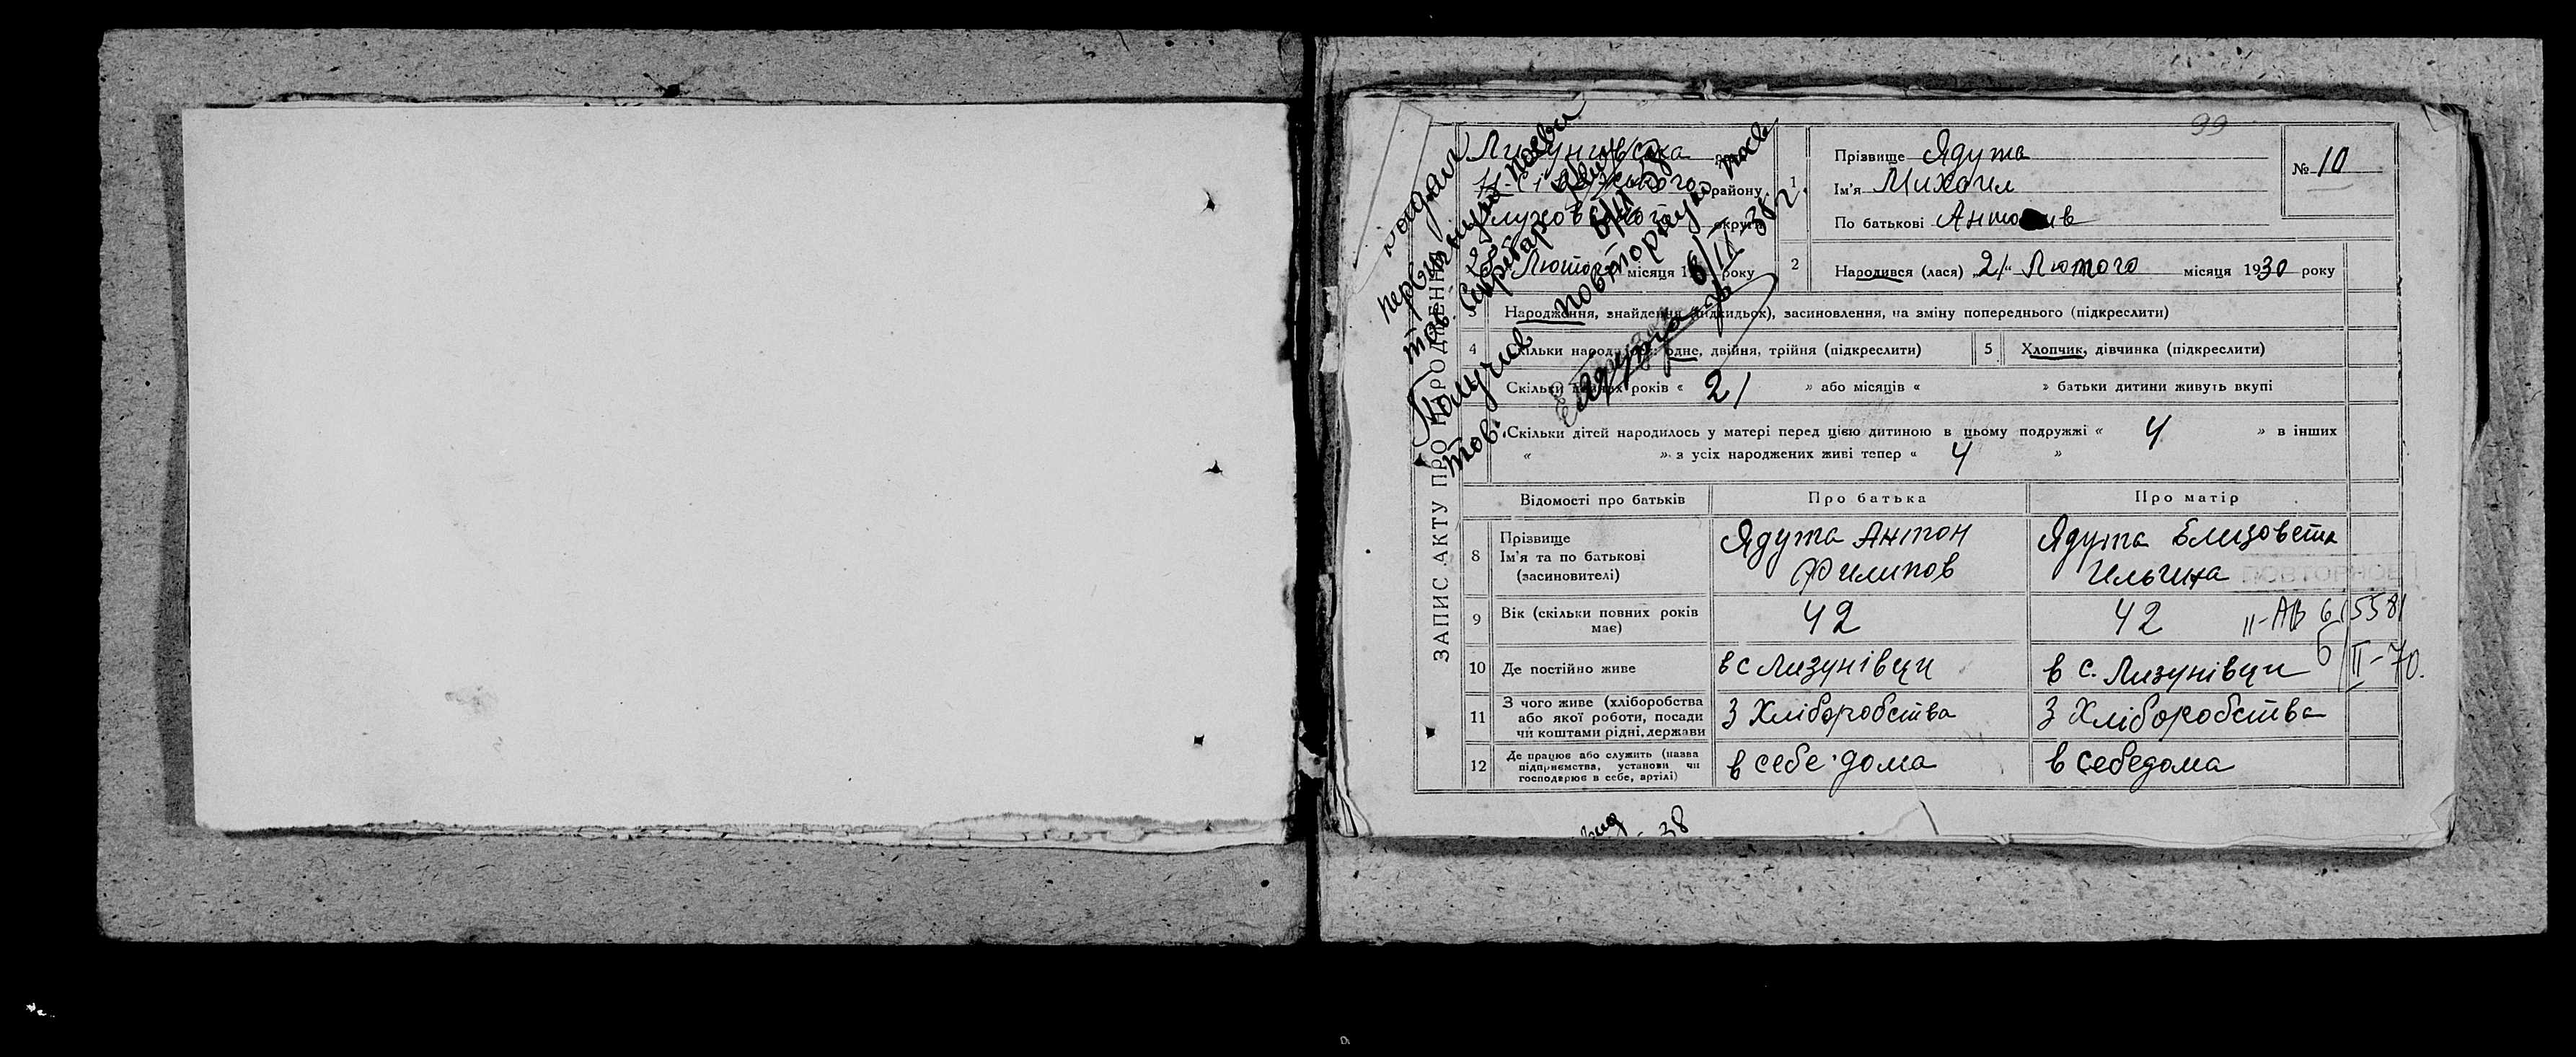 99
ЗАПИС АКТУ ПРО НАРОДЖЕННЯ
Лизунівська
району
округи
Лютого місяця 19 року
Получив повторную
тов. Ядута 6/II-38 г.
1
Прізвище Ядута
Ім'я Михаил
По батькові
№ 10
2
Народився (лася) „21“ Лютого місяця 1930 року
3 Народження, знайдення (підкидьок), засиновлення, на зміну попереднього (підкреслити)
4 Скільки народилось: одне, двійня, трійня (підкреслити)
5 Хлопчик, дівчинка (підкреслити)
Скільки повних років « 21 » або місяців « » батьки дитини живуть вкупі
Скільки дітей народилось у матері перед цією дитиною в цьому подружжі « 4 » в інших
« » з усіх народжених живі тепер « 4 »
Відомості про батьків Про батька Про матір
8 Прізвище
Ім'я та по батькові
(засиновителі)
Ядута Антон
Филипов
Ядута Елизовета
Ильина
ПОВТОРНОЕ
9 Вік (скільки повних років
має)
42 42
II-АБ 6 5581
6/II-70.
10 Де постійно живе в с Лизунівци в с. Лизунівци
11 З чого живе (хліборобства
або якої роботи, посади
чи коштами рідні, держави
З Хліборобства З Хліборобства
12 Де працює або служить (назва
підприємства, установи чи
господарює в себе, артілі)
в себе дома в себе дома
38